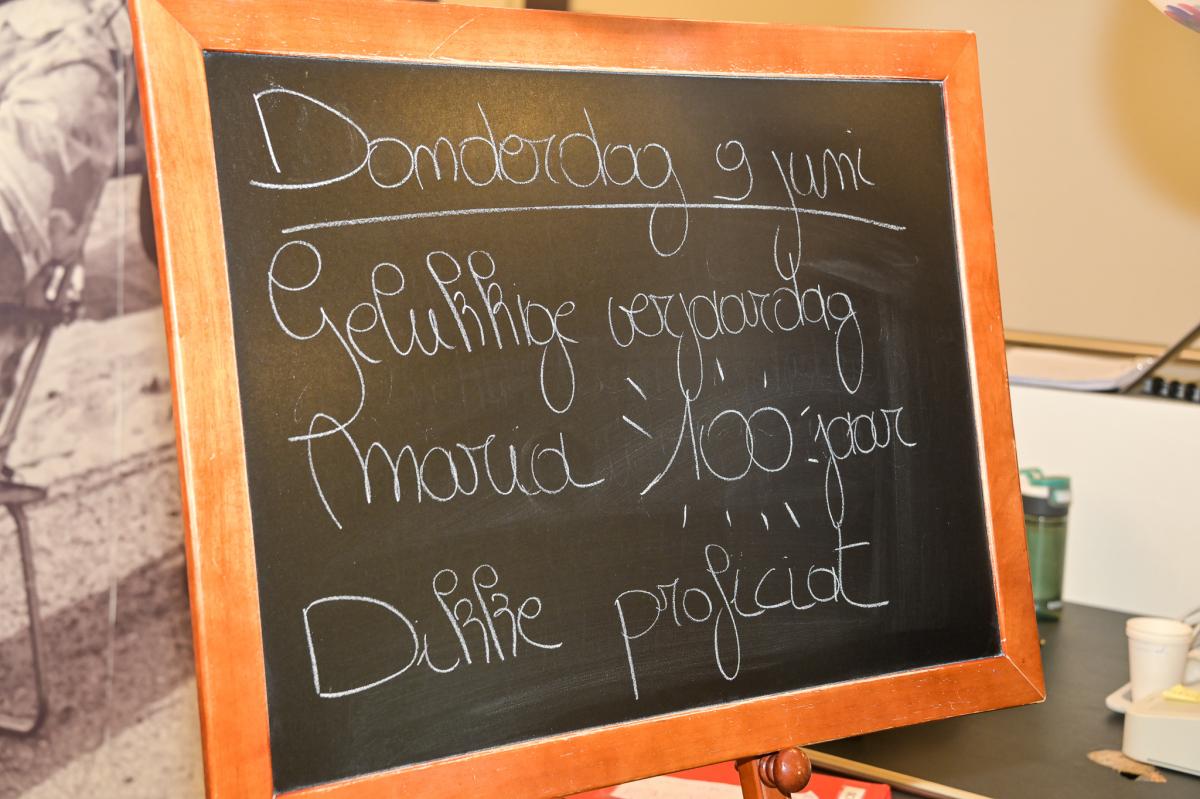 Donderdag 9 juni
Gelukkige verjaardag
Maria 100 jaar
Dikke proficiat